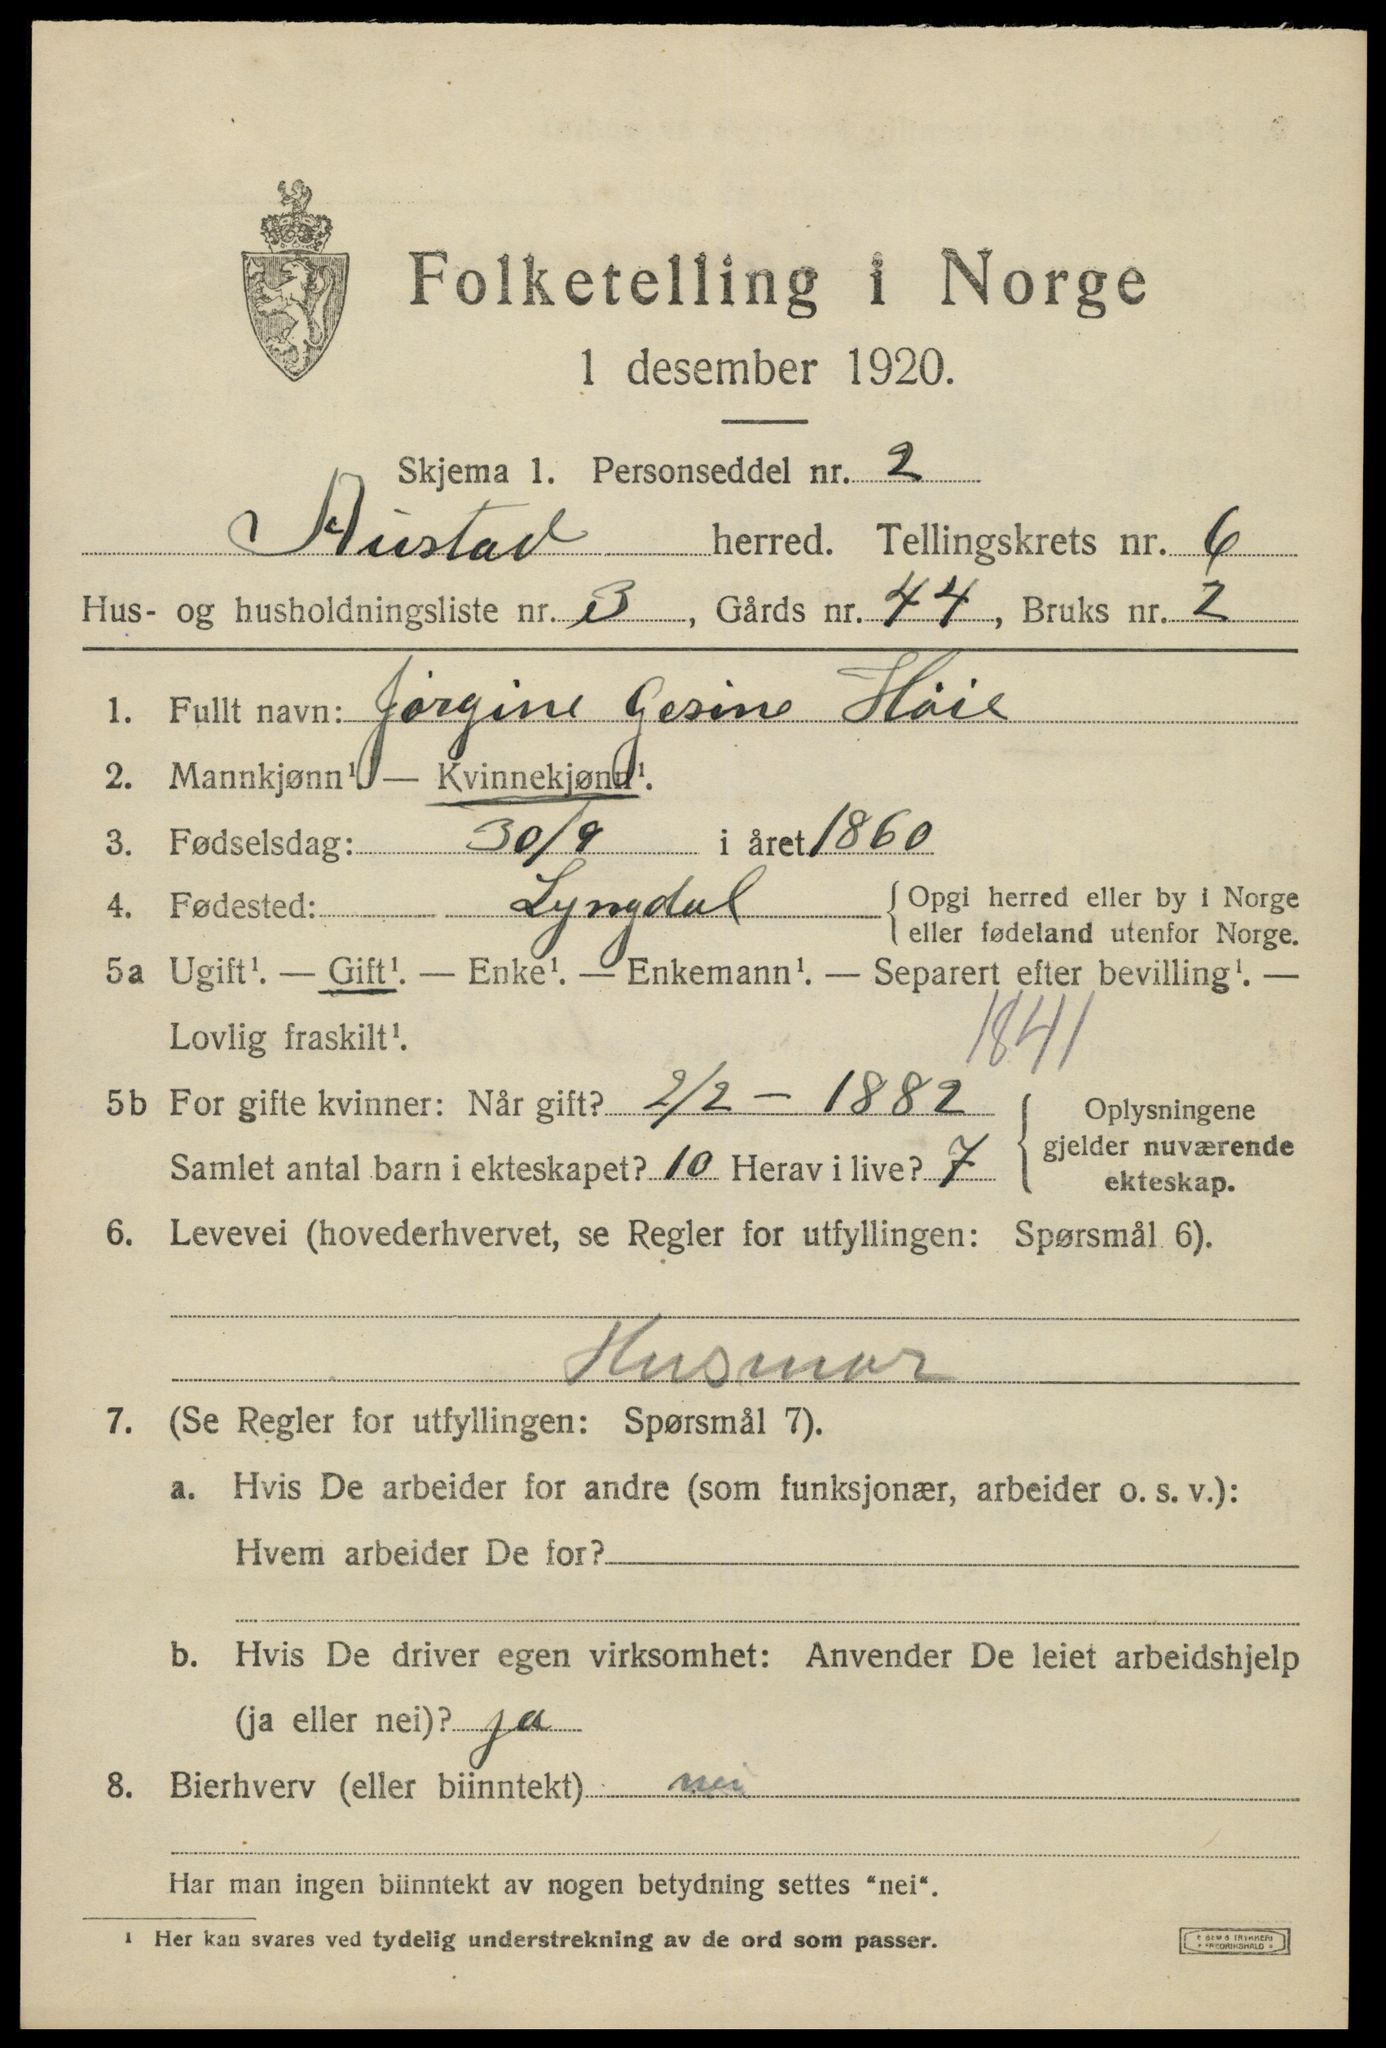 Folketelling i Norge
1 desember 1920.
Skjema 1. Personseddel nr. 2
Austad herred. Tellingskrets nr. 6
Hus- og husholdningsliste nr. 3, Gårds nr. 44, Bruks nr. 2
1. Fullt navn: Jørgine Gesine Høie
2. Mannkjønn¹. — Kvinnekjønn¹.
3. Fødselsdag: 30/9 i året 1860
4. Fødested: Lyngdal { Opgi herred eller by i Norge
eller fødeland utenfor Norge.
5a Ugift¹. — Gift¹. — Enke¹. — Enkemann¹. — Separert efter bevilling¹. —
Lovlig fraskilt¹. 1841
5b For gifte kvinner: Når gift? 2/2 — 1882
Samlet antal barn i ekteskapet? 10 Herav i live? 7
{ Oplysningene
gjelder nuværende
ekteskap.
6. Levevei (hovederhvervet, se Regler for utfyllingen: Spørsmål 6).
Husmor
7. (Se Regler for utfyllingen: Spørsmål 7).
a. Hvis De arbeider for andre (som funksjonær, arbeider o. s. v.):
Hvem arbeider De for?
b. Hvis De driver egen virksomhet: Anvender De leiet arbeidshjelp
(ja eller nei)? ja
8. Bierhverv (eller biinntekt) nei
Har man ingen biinntekt av nogen betydning settes "nei".
1 Her kan svares ved tydelig understrekning av de ord som passer.